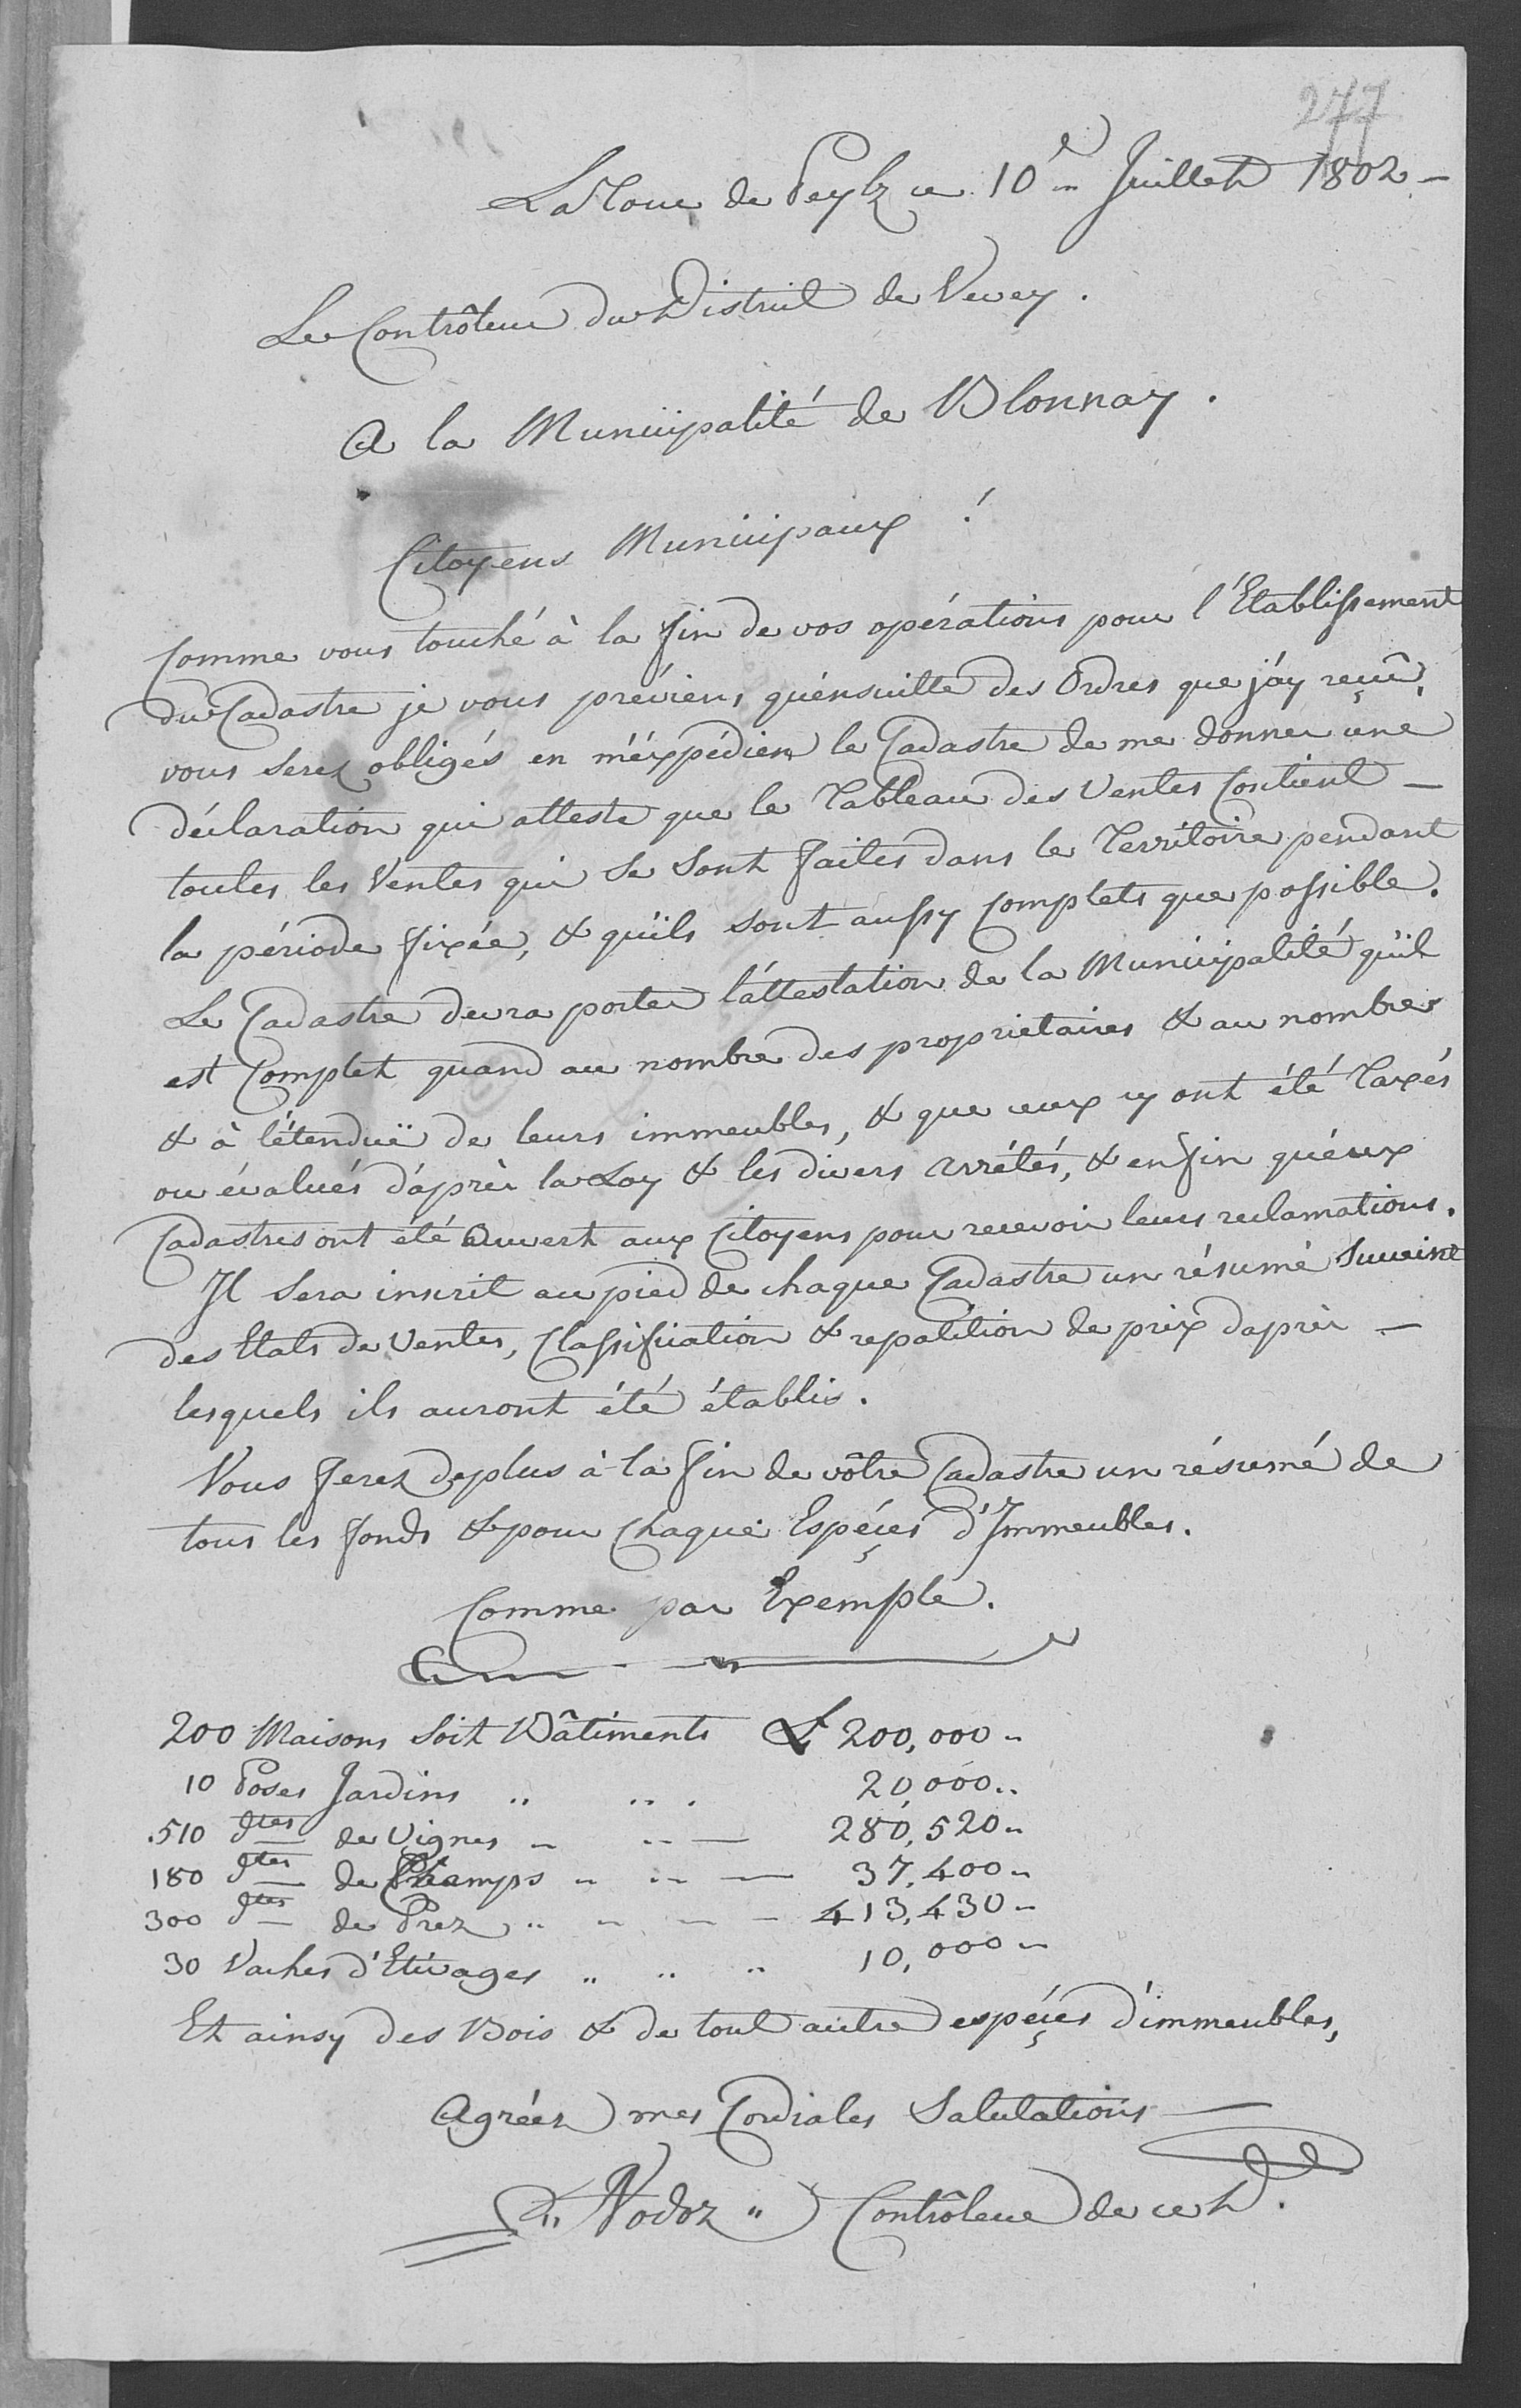 277
La Tour de Peylz ce 10e Juillet 1802 –
Le Contrôleur du District de Vevey.
A la Municipalité de Blonnay.
Citoyens Municipaux !
Comme vous touché à la fin de vos opérations pour l'Etablissement
du Cadastre je vous préviens, qu'ensuitte des Ordres que j'ay reçû,
vous serez obligés en m'éxpédien le Cadastre de me donner une
déclaration qui atteste que le Tableau des Ventes Contient –
toutes les Ventes qui se sont faites dans le Territoire pendant
la période fixée, & qu'ils sont aussy Complets que possible.
Le Cadastre devra porter l'attestation de la Municipalité qu'il
est Complet quand au nombre des proprietaires & au nombre
& à l'étenduë de leurs immeubles, & que ceux cy ont été Taxés
ou évalués d'après la Loy & les divers Arrétés, & enfin qu'eux
Cadastres ont été Ouvert aux Citoyens pour recevoir leurs reclamations.
Il sera inscrit au pied de chaque Cadastre un résumé succint
des Etats de Ventes, Classification & repatition de prix d'après –
lesquels ils auront été établis.
Vous ferez deplus à la fin de vôtre Cadastre un résumé de
tous les fonds & pour Chaque Espéçes d'Immeubles.
Comme par Exemple.
200 Maisons soit Bâtiments £ 200,000 "
10 Poses Jardins " " . 20,000 "
510 dtes de Vignes " " – 280,520 "
180 dtes de Champs " " – 37,400 "
300 dtes de Prez " " – – 413,430 "
30 Vaches d'Etivages " " " 10,000 "
Et ainsy des Bois & de tout autre espéçes d'immeubles,
Agréez mes Cordiales Salutations –
Nodoz " Contrôleur de ce d.